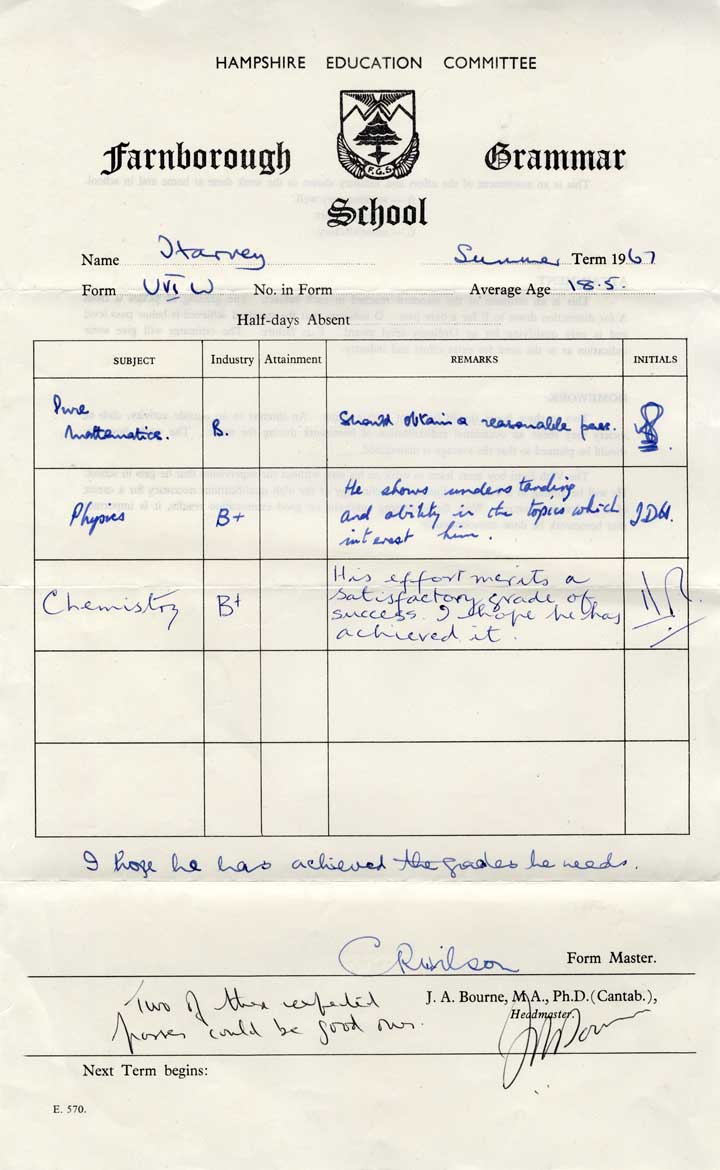 HAMPSHIRE EDUCATION COMMITTEE
Farnborough Grammar
F.G.S
School
Name Harvey Summer Term 1967
Form UVI W No. in Form Average Age 18.5.
Half-days Absent
SUBJECT Industry Attainment REMARKS INITIALS
Pure
Mathematics. B. Should obtain a reasonable pass.
Physics B+ He shows understanding
and ability in the topics which
interest him.
Chemistry B+ His effort merits a
satisfactory grade of
success. I hope he has
achieved it.
I hope he has achieved the grades he needs.
C R Wilson Form Master.
Two of these expected
passes could be good ones.
J. A. Bourne, M.A., Ph.D. (Cantab.),
Headmaster.
Next Term begins:
E. 570.